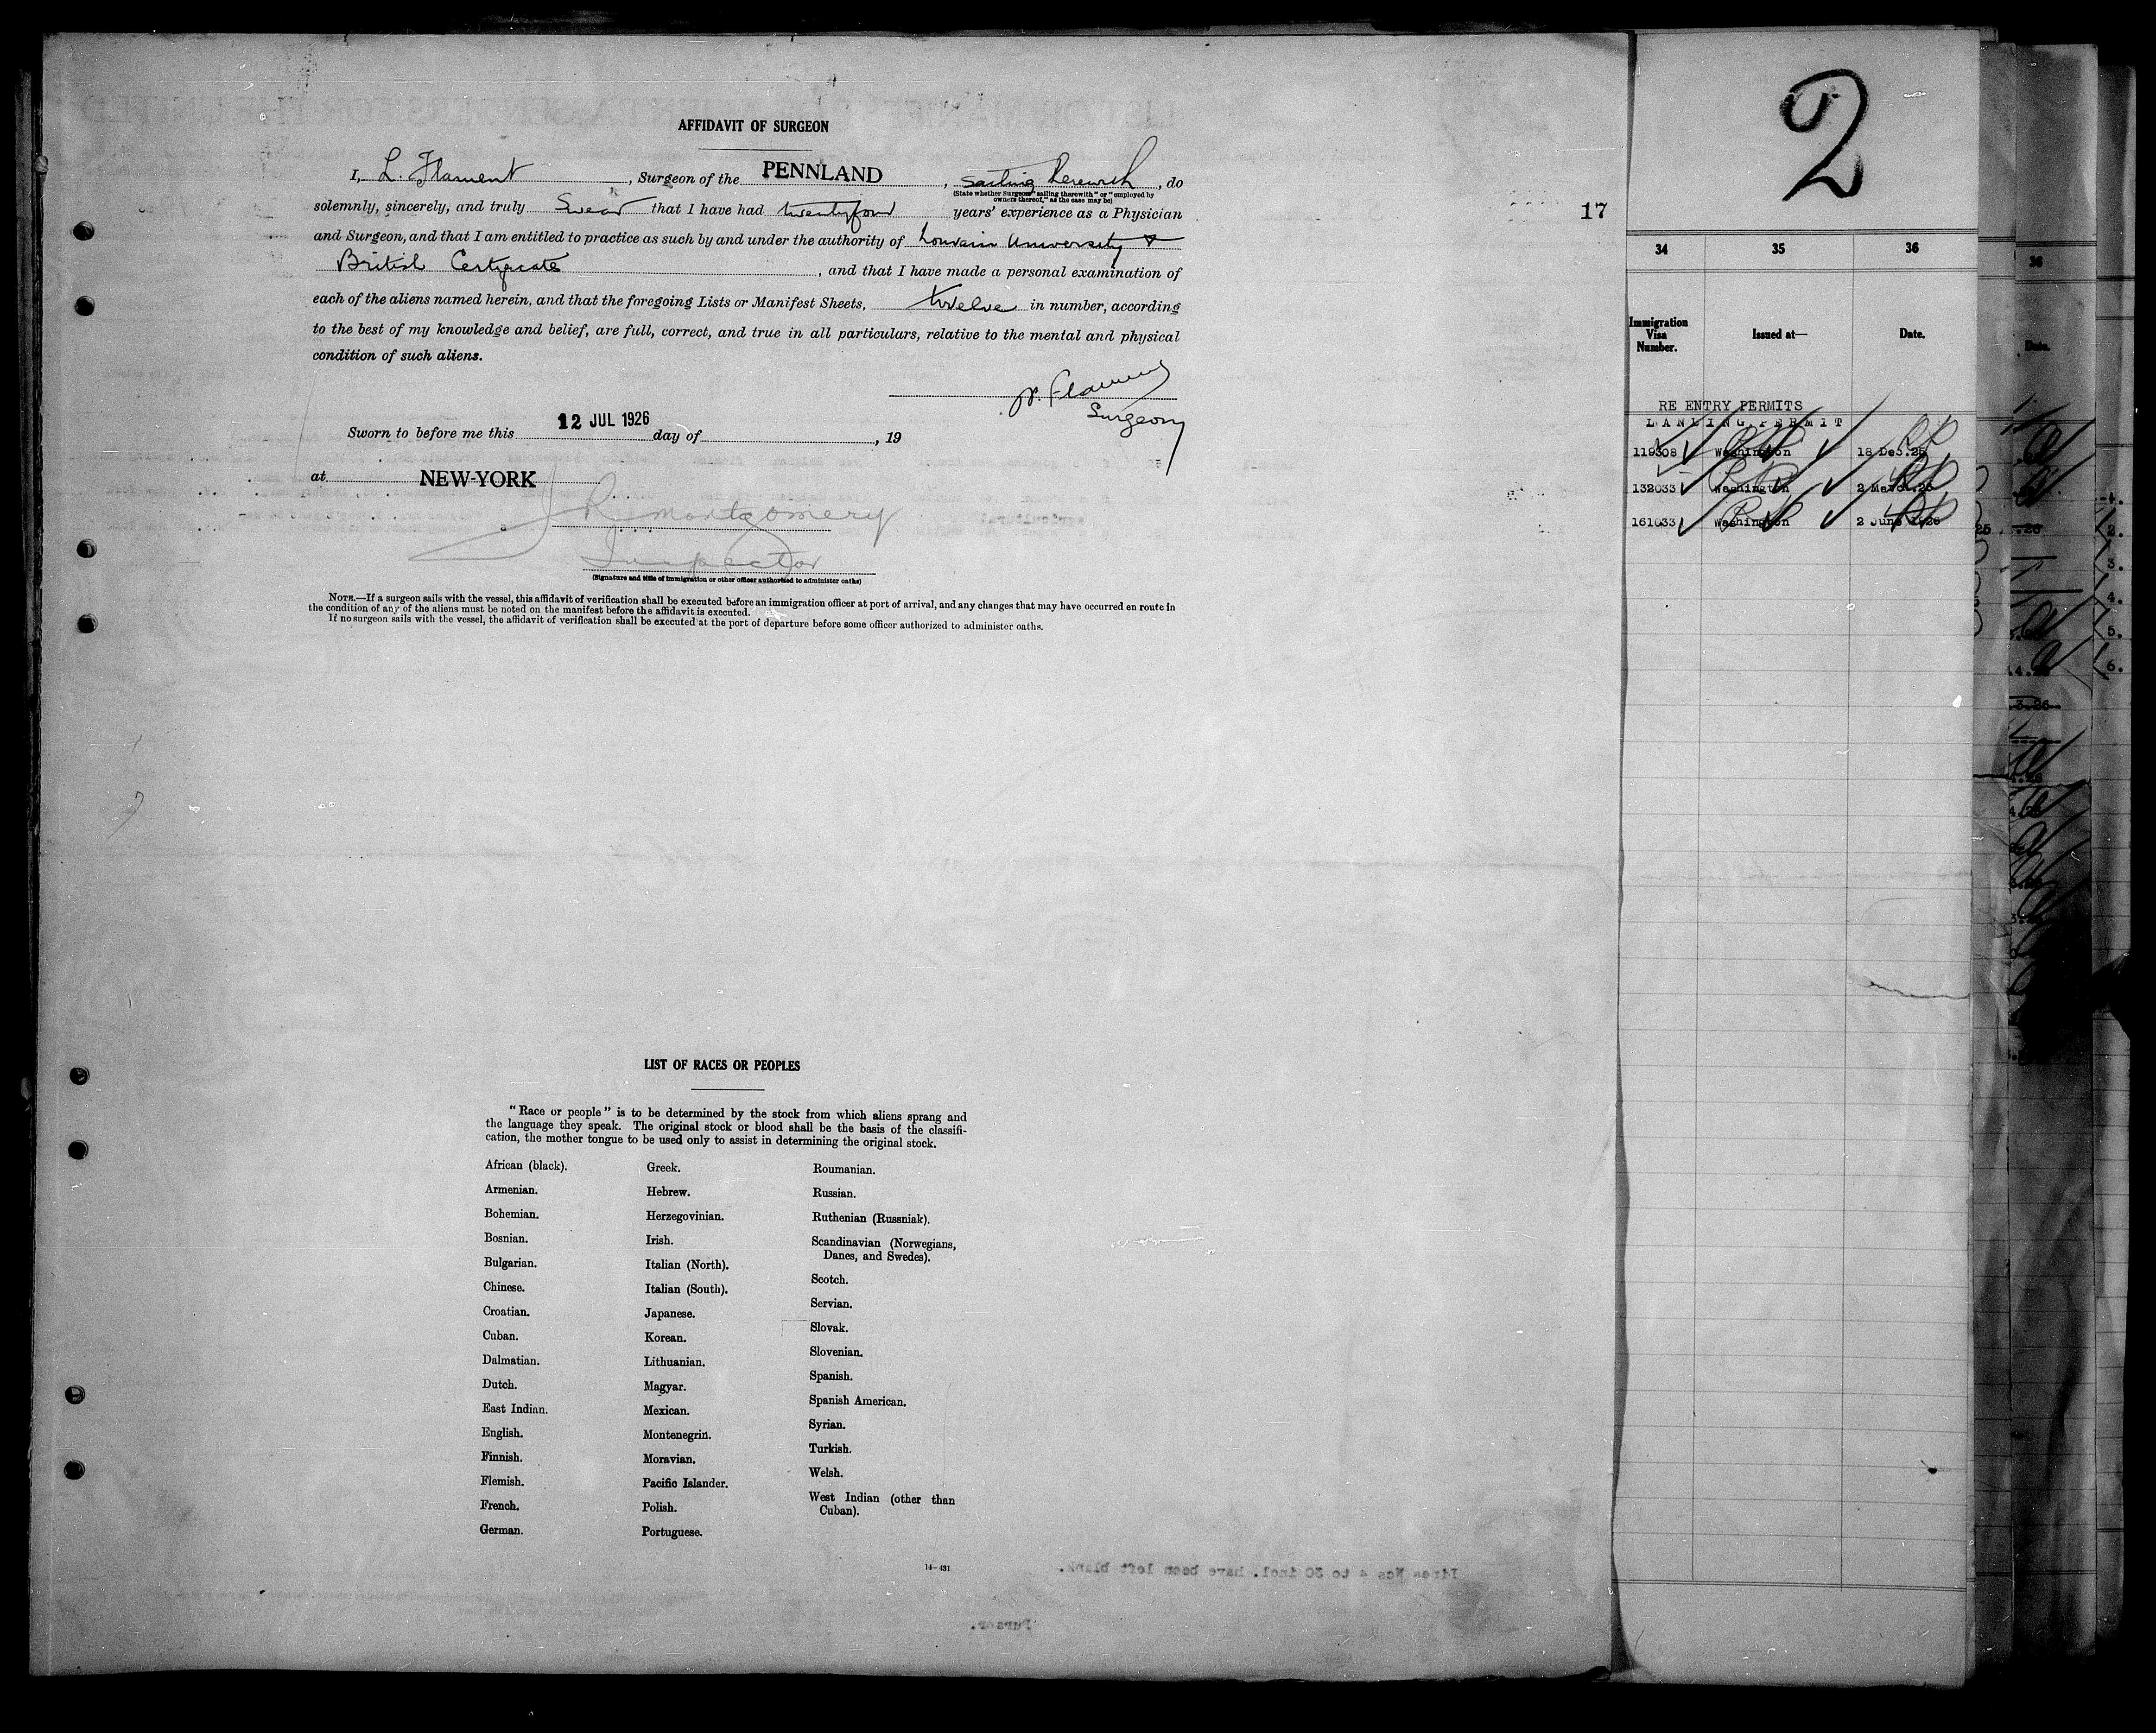 AFFIDAVIT OF SURGEON
I, L. Flament, Surgeon of the PENNLAND, sailing therewith, do
(State whether Surgeon "sailing therewith" or "employed by
owners thereof," as the case may be)
solemnly, sincerely, and truly Swear that I have had twentyfour years' experience as a Physician
and Surgeon, and that I am entitled to practice as such by and under the authority of Louvain University &
British Certificate, and that I have made a personal examination of
each of the aliens named herein, and that the foregoing Lists or Manifest Sheets, twelve in number, according
to the best of my knowledge and belief, are full, correct, and true in all particulars, relative to the mental and physical
condition of such aliens.
Flament
Surgeon
Sworn to before me this 12 JUL 1926 day of , 19
at NEW-YORK
Montgomery
Inspector
(Signature and title of immigration or other officer authorized to administer oaths)
NOTE.—If a surgeon sails with the vessel, this affidavit of verification shall be executed before an immigration officer at port of arrival, and any changes that may have occurred en route in
the condition of any of the aliens must be noted on the manifest before the affidavit is executed.
If no surgeon sails with the vessel, the affidavit of verification shall be executed at the port of departure before some officer authorized to administer oaths.
LIST OF RACES OR PEOPLES
"Race or people" is to be determined by the stock from which aliens sprang and
the language they speak. The original stock or blood shall be the basis of the classifi-
cation, the mother tongue to be used only to assist in determining the original stock.
African (black).
Armenian.
Bohemian.
Bosnian.
Bulgarian.
Chinese.
Croatian.
Cuban.
Dalmatian.
Dutch.
East Indian.
English.
Finnish.
Flemish.
French.
German.
Greek.
Hebrew.
Herzegovinian.
Irish.
Italian (North).
Italian (South).
Japanese.
Korean.
Lithuanian.
Magyar.
Mexican.
Montenegrin.
Moravian.
Pacific Islander.
Polish.
Portuguese.
Roumanian.
Russian.
Ruthenian (Russniak).
Scandinavian (Norwegians,
Danes, and Swedes).
Scotch.
Servian.
Slovak.
Slovenian.
Spanish.
Spanish American.
Syrian.
Turkish.
Welsh.
West Indian (other than
Cuban).
14-431
Lines Nos 4 to 30 incl. have been left blank.
Purser.
17
2
34 35 36
Immigration
Visa
Number.
Issued at—
Date.
RE ENTRY PERMITS
LANDING PERMIT
119308 Washington 18 Dec.25
132033 Washington 2 March.26
161033 Washington 2 June 1926
36
Date.
1.
2.
3.
4.
5.
6.